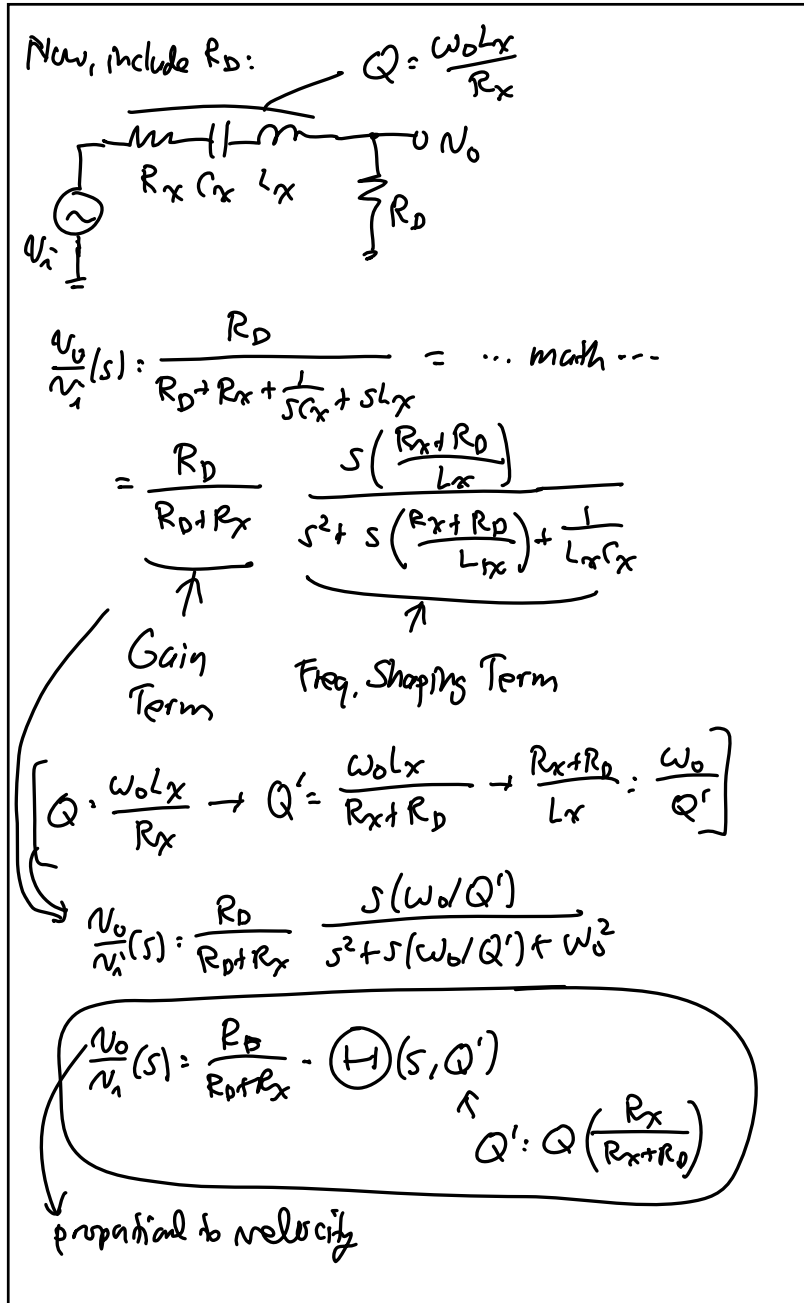 Now, include R_D: Q = ω₀Lx/Rx
Rx Cx Lx
v₀
R_D
vᵢ
v₀/vᵢ (s) = R_D / (R_D + Rx + 1/(sCx) + sLx) = ... math ...
= R_D/(R_D+Rx) · s((Rx+R_D)/Lx) / (s² + s((Rx+R_D)/Lx) + 1/(LxCx))
Gain Term
Freq. Shaping Term
[Q = ω₀Lx/Rx → Q' = ω₀Lx/(Rx+R_D) → (Rx+R_D)/Lx = ω₀/Q']
v₀/vᵢ (s) = R_D/(R_D+Rx) · s(ω₀/Q') / (s² + s(ω₀/Q') + ω₀²)
v₀/vᵢ (s) = R_D/(R_D+Rx) · Ⓗ(s, Q')
Q' = Q(Rx/(Rx+R_D))
propational to velocity